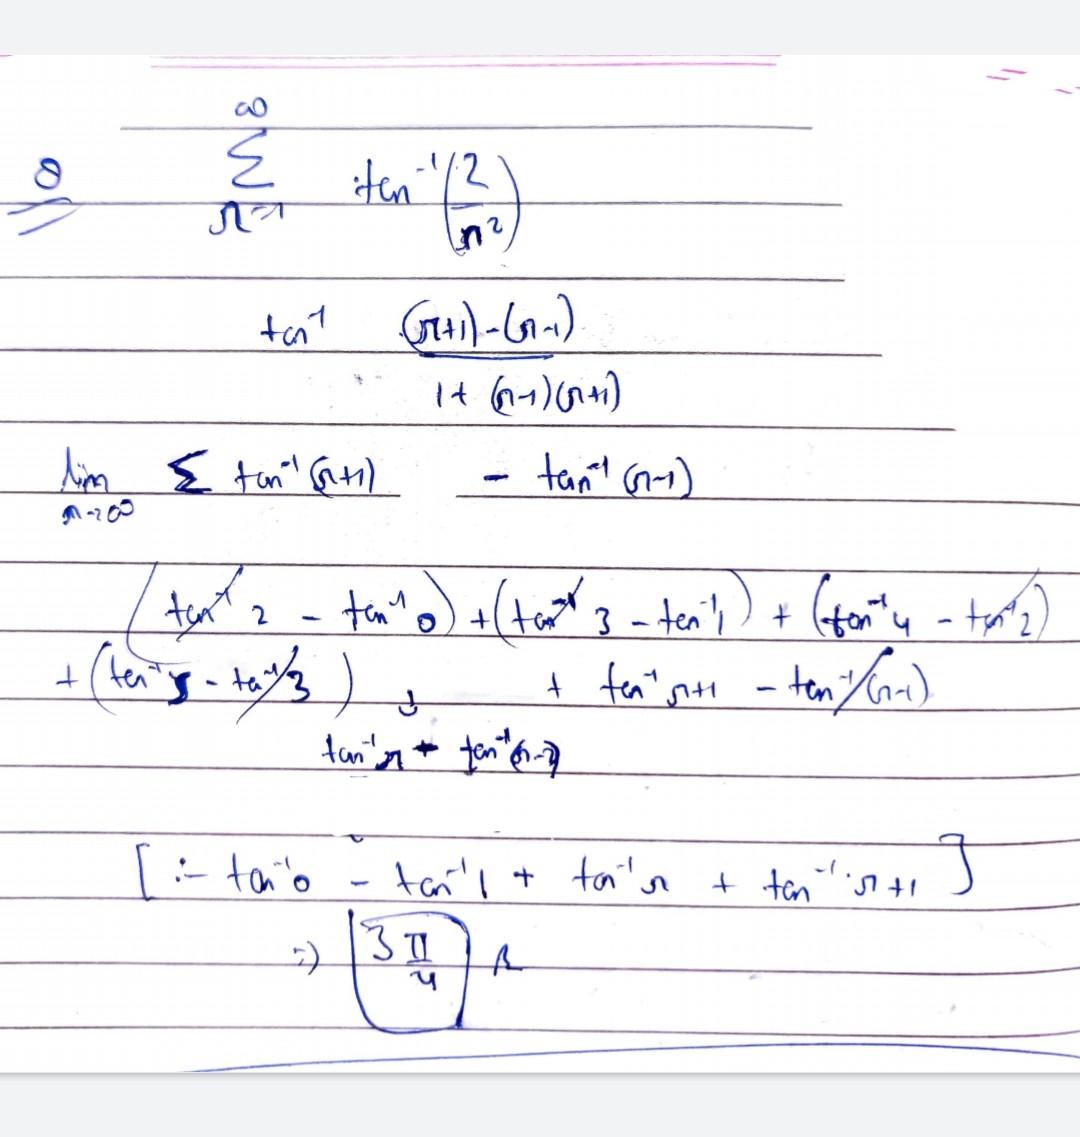 Q ∞ Σ n=1 tan⁻¹(2/n²)
tan⁻¹ (n+1)-(n-1) / 1+(n-1)(n+1)
lim n→∞ Σ tan⁻¹(n+1) - tan⁻¹(n-1)
(tan⁻¹ 2 - tan⁻¹ 0) + (tan⁻¹ 3 - tan⁻¹ 1) + (tan⁻¹ 4 - tan⁻¹ 2)
+ (tan⁻¹ 5 - tan⁻¹ 3) + tan⁻¹ n+1 - tan⁻¹(n-1)
tan⁻¹ n + tan⁻¹(n-2)
[ :- tan⁻¹ 0 - tan⁻¹ 1 + tan⁻¹ n + tan⁻¹ n+1 ]
=> 3π/4